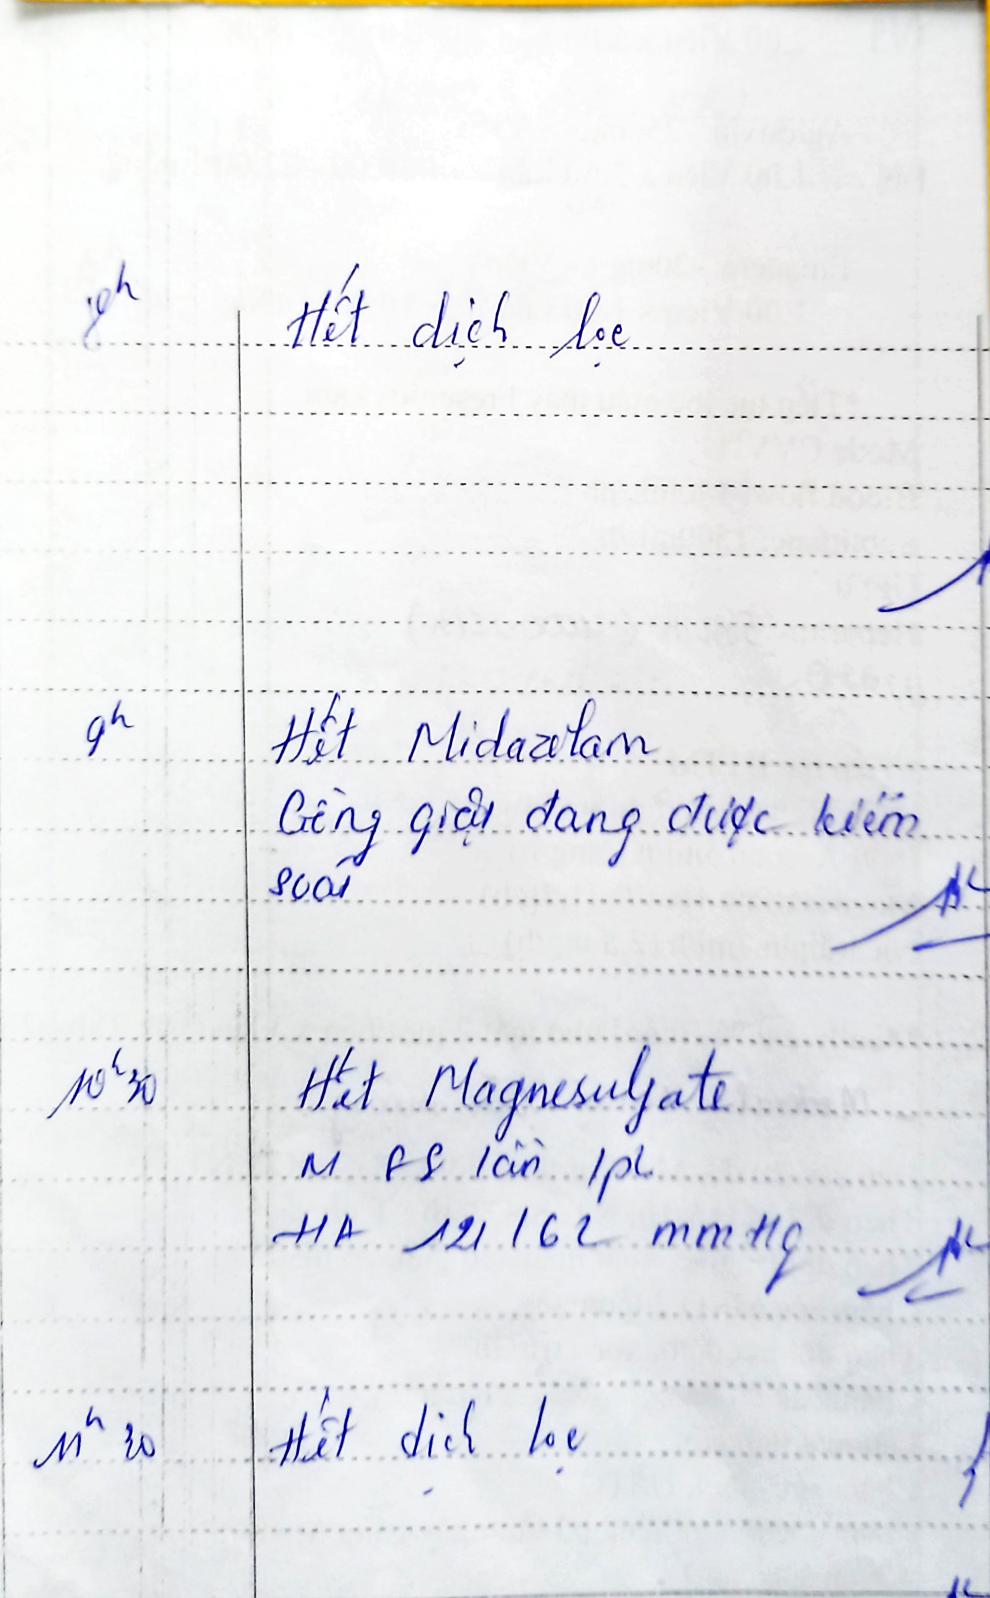 Hết dịch lọc
9h Hết Midazolam
Gồng giật đang được kiểm
soát
10h30 Hết Magnesulfate
M 88 lần/ph
HA 121/62 mmHg
11h30 Hết dịch lọc